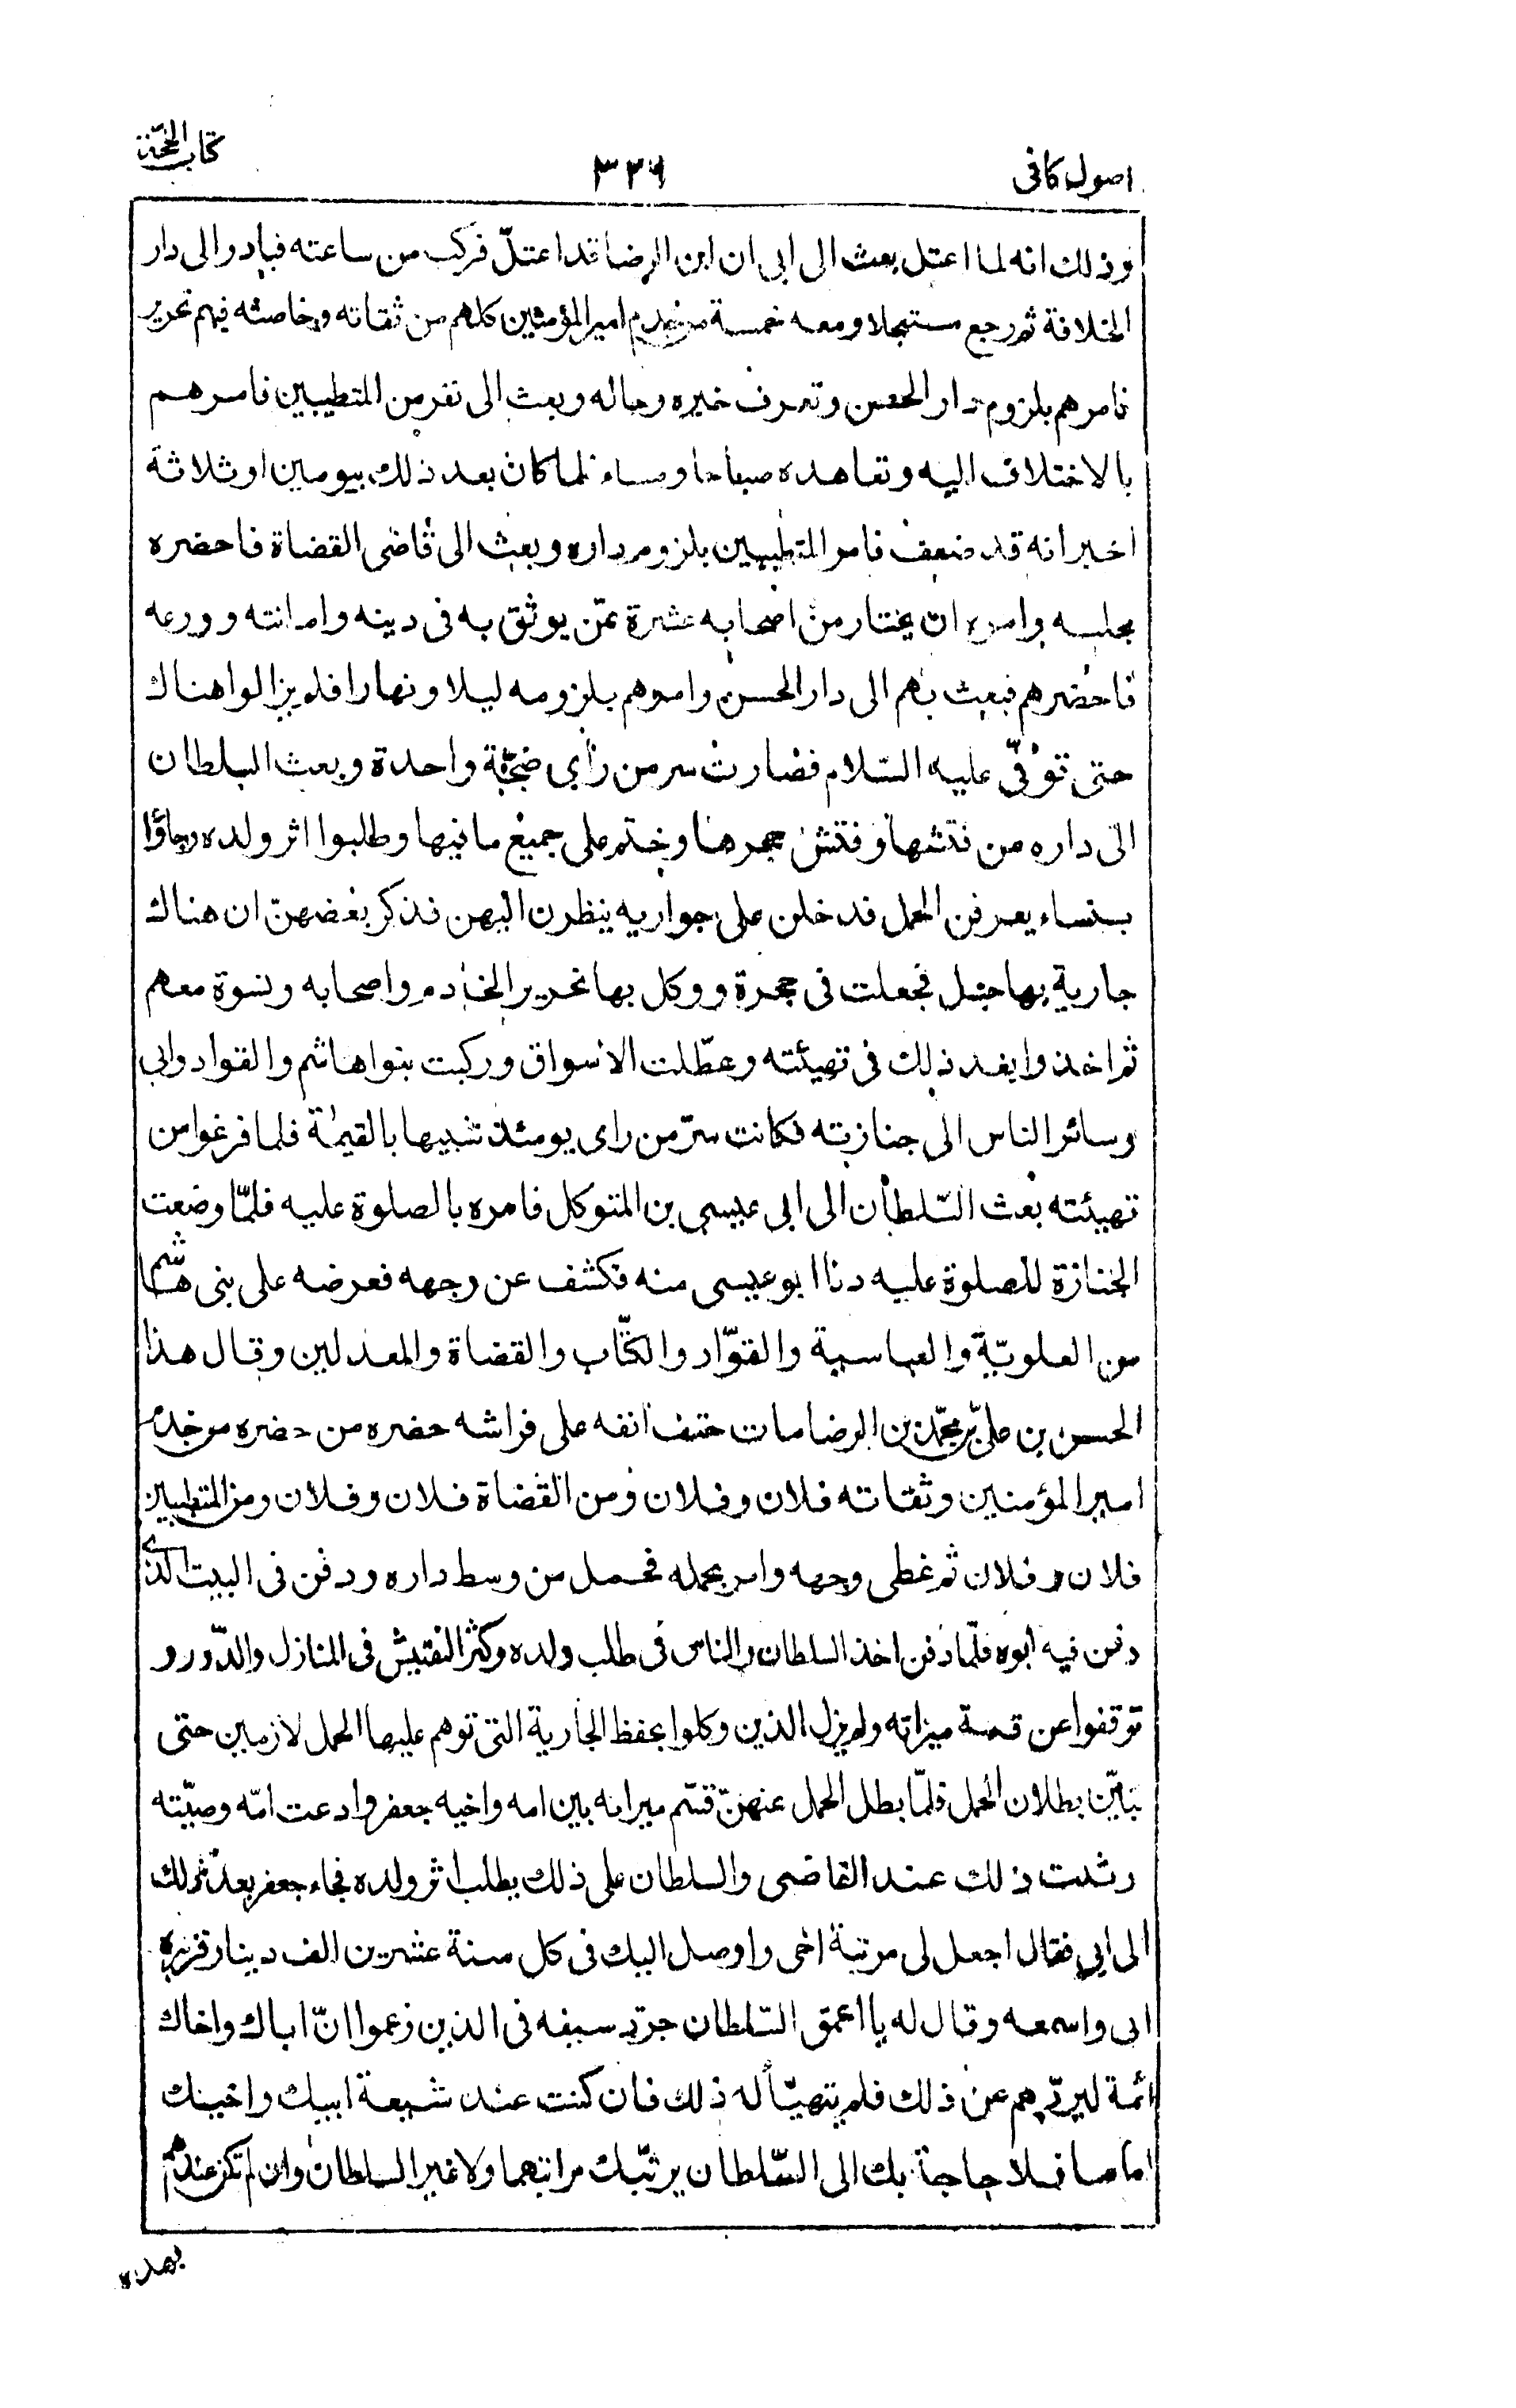 اصول كافى
٣٢٦
كتاب الحجة
وذلك انه لما اعتل بعث الى ابى ان ابن الرضا قد اعتلّ فركب من ساعته فبادر الى دار
الخلافة ثم رجع مستعجلا ومعه خمسة من خدم امير المؤمنين كلهم من ثقاته وخاصته فيهم نحرير
فامرهم بلزوم دار الحسن وتعرف خبره وحاله وبعث الى نفر من المتطببين فامرهم
بالاختلاف اليه وتعاهده صباحا ومساء فلما كان بعد ذلك بيومين او ثلاثة
اخبر انه قد ضعف فامر المتطببين بلزوم داره وبعث الى قاضى القضاة فاحضره
مجلسه وامره ان يختار من اصحابه عشرة ممّن يوثق به فى دينه وامانته وورعه
فاحضرهم فبعث بهم الى دار الحسن وامرهم بلزومه ليلا ونهارا فلم يزالوا هناك
حتى توفّى عليه السّلام فصارت سر من رأى ضجّة واحدة وبعث السلطان
الى داره من فتشها وفتش حجرها وختم على جميع ما فيها وطلبوا اثر ولده وجاؤا
بنساء يعرفن الحمل فدخلن على جواريه ينظرن اليهن فذكر بعضهنّ ان هناك
جارية بها حبل فجعلت فى حجرة ووكل بها نحرير الخادم واصحابه ونسوة معهم
ثم اخذوا بعد ذلك فى تهيئته وعطّلت الاسواق وركبت بنوا هاشم والقواد وابى
وسائر الناس الى جنازته فكانت سرّ من راى يومئذ شبيها بالقيمة فلما فرغوا من
تهيئته بعث السّلطان الى ابى عيسى بن المتوكل فامره بالصلوة عليه فلمّا وضعت
الجنازة للصلوة عليه دنا ابو عيسى منه فكشف عن وجهه فعرضه على بنى هاشم
من العلويّة والعباسية والقوّاد والكتّاب والقضاة والمعدلين وقال هذا
الحسن بن علىّ بن محمّد بن الرضا مات حتف انفه على فراشه حضره من حضره من خدم
امير المؤمنين وثقاته فلان وفلان ومن القضاة فلان وفلان ومن المتطببين
فلان وفلان ثم غطى وجهه وامر بحمله فحمل من وسط داره ودفن فى البيت الذى
دفن فيه ابوه فلمّا دفن اخذ السلطان والناس فى طلب ولده وكثر التفتيش فى المنازل والدّور و
توقفوا عن قسمة ميراثه ولم يزل الذين وكلوا بحفظ الجارية التى توهم عليها الحمل لازمين حتى
تبيّن بطلان الحمل فلمّا بطل الحمل عنهنّ قسّم ميراثه بين امه واخيه جعفر وادعت امّه وصيّته
وثبت ذلك عند القاضى والسلطان على ذلك يطلب اثر ولده فجاء جعفر بعد ذلك
الى ابى فقال اجعل لى مرتبة اخى واوصل اليك فى كل سنة عشرين الف دينار فزبره
ابى واسمعه وقال له يا احمق السّلطان جرّد سيفه فى الذين زعموا انّ اباك واخاك
ائمة ليردّهم عن ذلك فلم يتهيّأ له ذلك فان كنت عند شيعة ابيك واخيك
اماما فلا حاجة بك الى السّلطان يرتّبك مراتبهما ولا غير السلطان وان لم تكن عندهم
بهذه